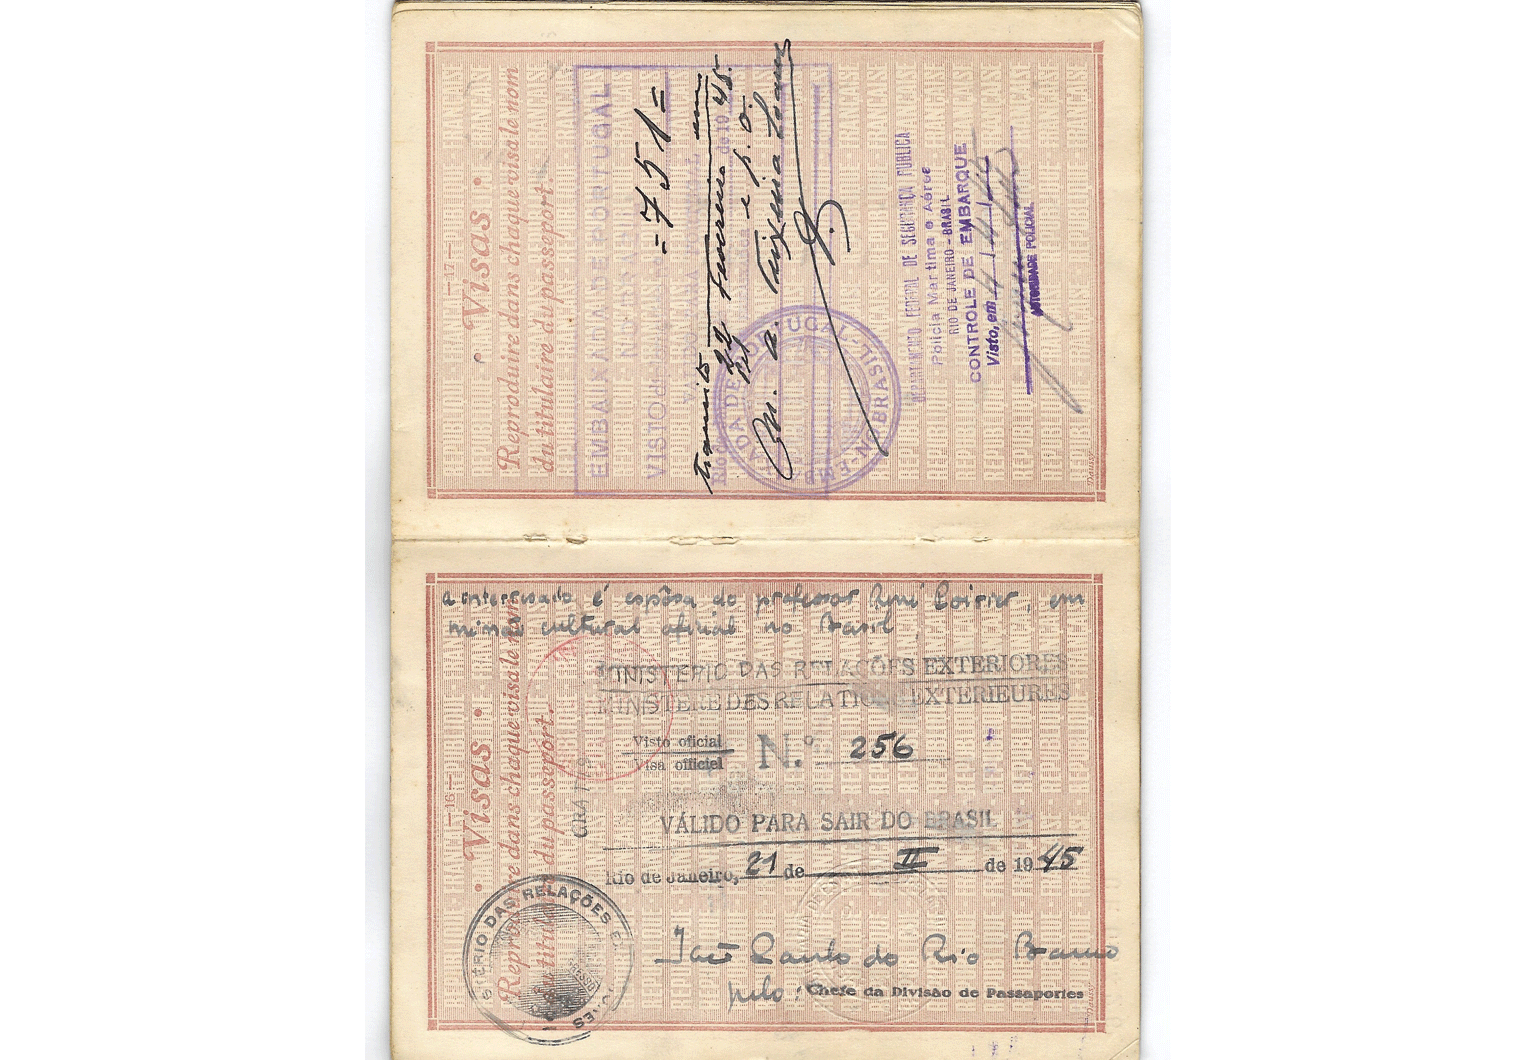 — 17 —
• Visas •
Reproduire dans chaque visa le nom
du titulaire du passeport.
EMBAIXADA DE PORTUGAL
NO BRASIL
VISTO
= 751 =
transito
22 Fevereiro
de 1945.
e p. o.
Teixeira Soares
EMBAIXADA DE PORTUGAL - NO BRASIL
DEPARTAMENTO FEDERAL DE SEGURANÇA PUBLICA
Policia Maritima e Aérea
RIO DE JANEIRO - BRASIL
CONTROLE DE EMBARQUE
Visto, em 4 / 4 / 45
AUTORIDADE POLICIAL
— 16 —
• Visas •
Reproduire dans chaque visa le nom
du titulaire du passeport.
a interessada é espôsa do professor René Poirier, em
missão cultural oficial no Brasil.
MINISTERIO DAS RELAÇÕES EXTERIORES
MINISTERE DES RELATIONS EXTERIEURES
Visto oficial
Visa officiel
N.º 256
GRATIS
VÁLIDO PARA SAIR DO BRASIL
Rio de Janeiro, 21 de II de 1945
do Rio Branco
pelo: Chefe da Divisão de Passaportes